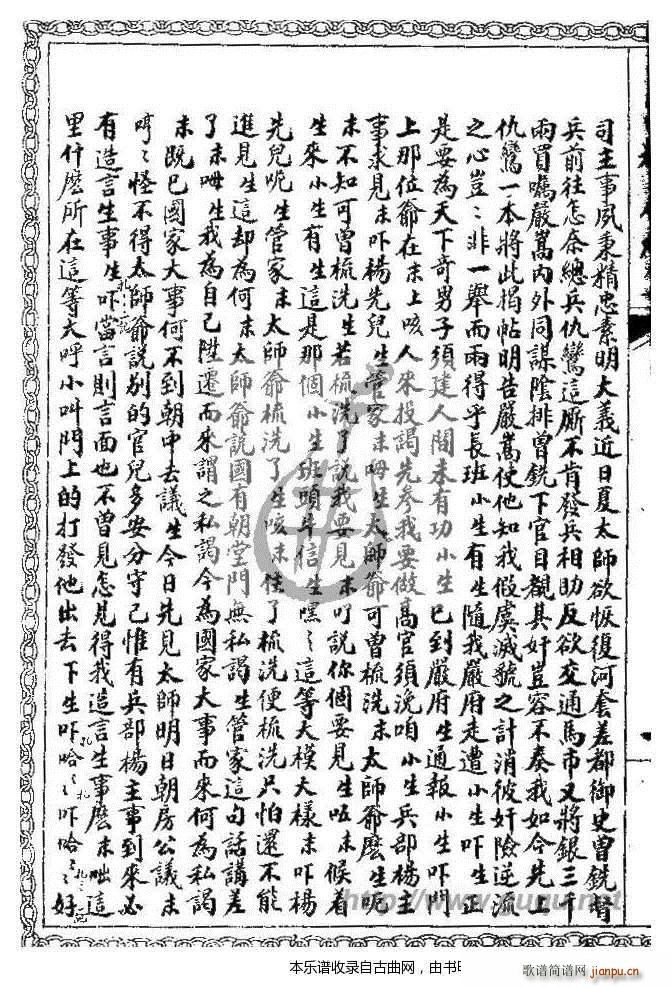 司主事夙秉精忠素明大義近日夏太師欲恢復河套差都御史曾銑督
兵前往怎奈總兵仇鸞這厮不肯發兵相助反欲交通馬市又將銀三千
兩買囑嚴嵩內外同謀陰排曾銑下官目覩其奸豈容不奏我如今先上
仇鸞一本將此揭帖明告嚴嵩使他知我假虞滅號之計消彼奸險逆流
之心豈〻非一舉而兩得乎長班小生有生隨我嚴府走遭小生吓生正
是要為天下奇男子須建人間未有功小生已到嚴府生通報小生吓門
上那位爺在末上咳人來投謁先參我要做高官須浼咱小生兵部楊主
事求見末吓楊先兒生管家末呣生太師爺可曾梳洗末太師爺麽生呃
末不知可曾梳洗生若梳洗了說我要見末叮說你個要見生呃末候着
生來小生有生這是那個小生班頭牛信生嘿〻這等大模大樣末吓楊
先兒呃生管家末太師爺梳洗了生咳末住了梳洗便梳洗只怕還不能
進見生這却為何末太師爺說國有朝堂門無私謁生管家這句話講差
了末呣生我為自己陞遷而來謂之私謁今為國家大事而來何為私謁
末既已國家大事何不到朝中去議生今日先見太師明日朝房公議末
哼〻怪不得太師爺說別的官兒多安分守己惟有兵部楊主事到來必
有造言生事生吓當言則言面也不曾見怎見得我造言生事麽末咄這
里什麽所在這等大呼小叫門上的打發他出去下生吓哈〻吓哈〻好
www.guqu.net
本乐谱收录自古曲网，由书
歌谱简谱网
jianpu.cn